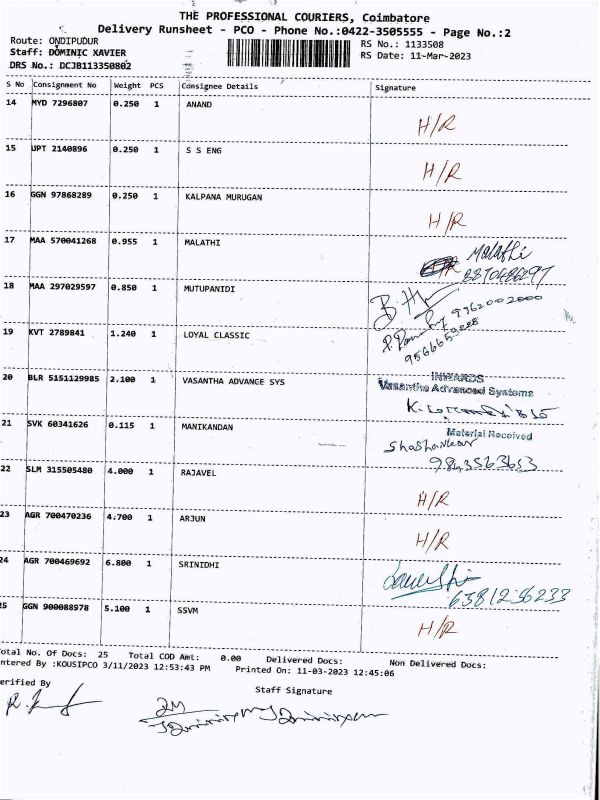 THE PROFESSIONAL COURIERS, Coimbatore
Delivery Runsheet - PCO - Phone No.:0422-3505555 - Page No.:2
Route: ONDIPUDUR RS No.: 1133508
Staff: DOMINIC XAVIER RS Date: 11-Mar-2023
DRS No.: DCJB113350802
S No Consignment No Weight PCS Consignee Details Signature
14 MYD 7296807 0.250 1 ANAND
H/R
15 UPT 2140896 0.250 1 S S ENG
H/R
16 GGN 97868289 0.250 1 KALPANA MURUGAN
H/R
17 MAA 570041268 0.955 1 MALATHI
Malathi
18 MAA 297029597 0.850 1 MUTUPANIDI
9962002000
19 KVT 2789841 1.240 1 LOYAL CLASSIC
20 BLR 5151129985 2.100 1 VASANTHA ADVANCE SYS
INWARDS
Vasantha Advanced Systems
21 SVK 60341626 0.115 1 MANIKANDAN
Material Received
Shashankar
9843563653
22 SLM 315505480 4.000 1 RAJAVEL
H/R
23 AGR 700470236 4.700 1 ARJUN
H/R
24 AGR 700469692 6.800 1 SRINIDHI
6381256233
25 GGN 900088978 5.100 1 SSVM
H/R
otal No. Of Docs: 25 Total COD Amt: 0.00 Delivered Docs: Non Delivered Docs:
ntered By :KOUSIPCO 3/11/2023 12:53:43 PM Printed On: 11-03-2023 12:45:06
erified By Staff Signature